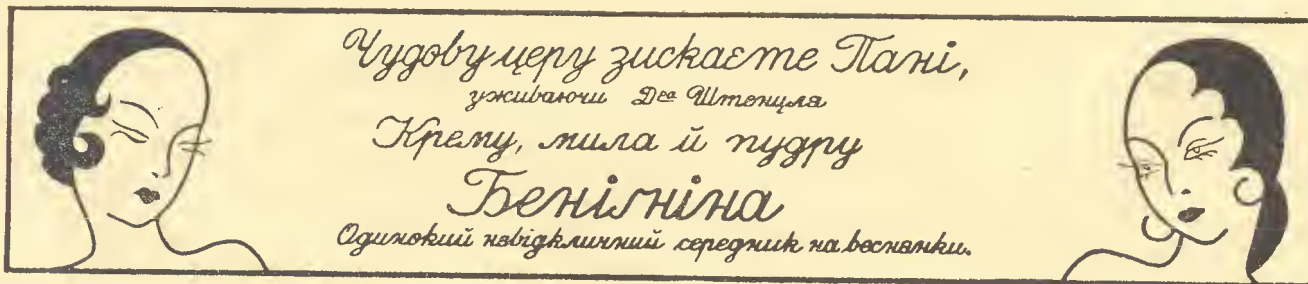 Чудову церу зискаєте Пані,
уживаючи Д-ра Штенцла
Крему, мила й пудру
Бенігніна
Одинокий невідкличний середник на веснянки.